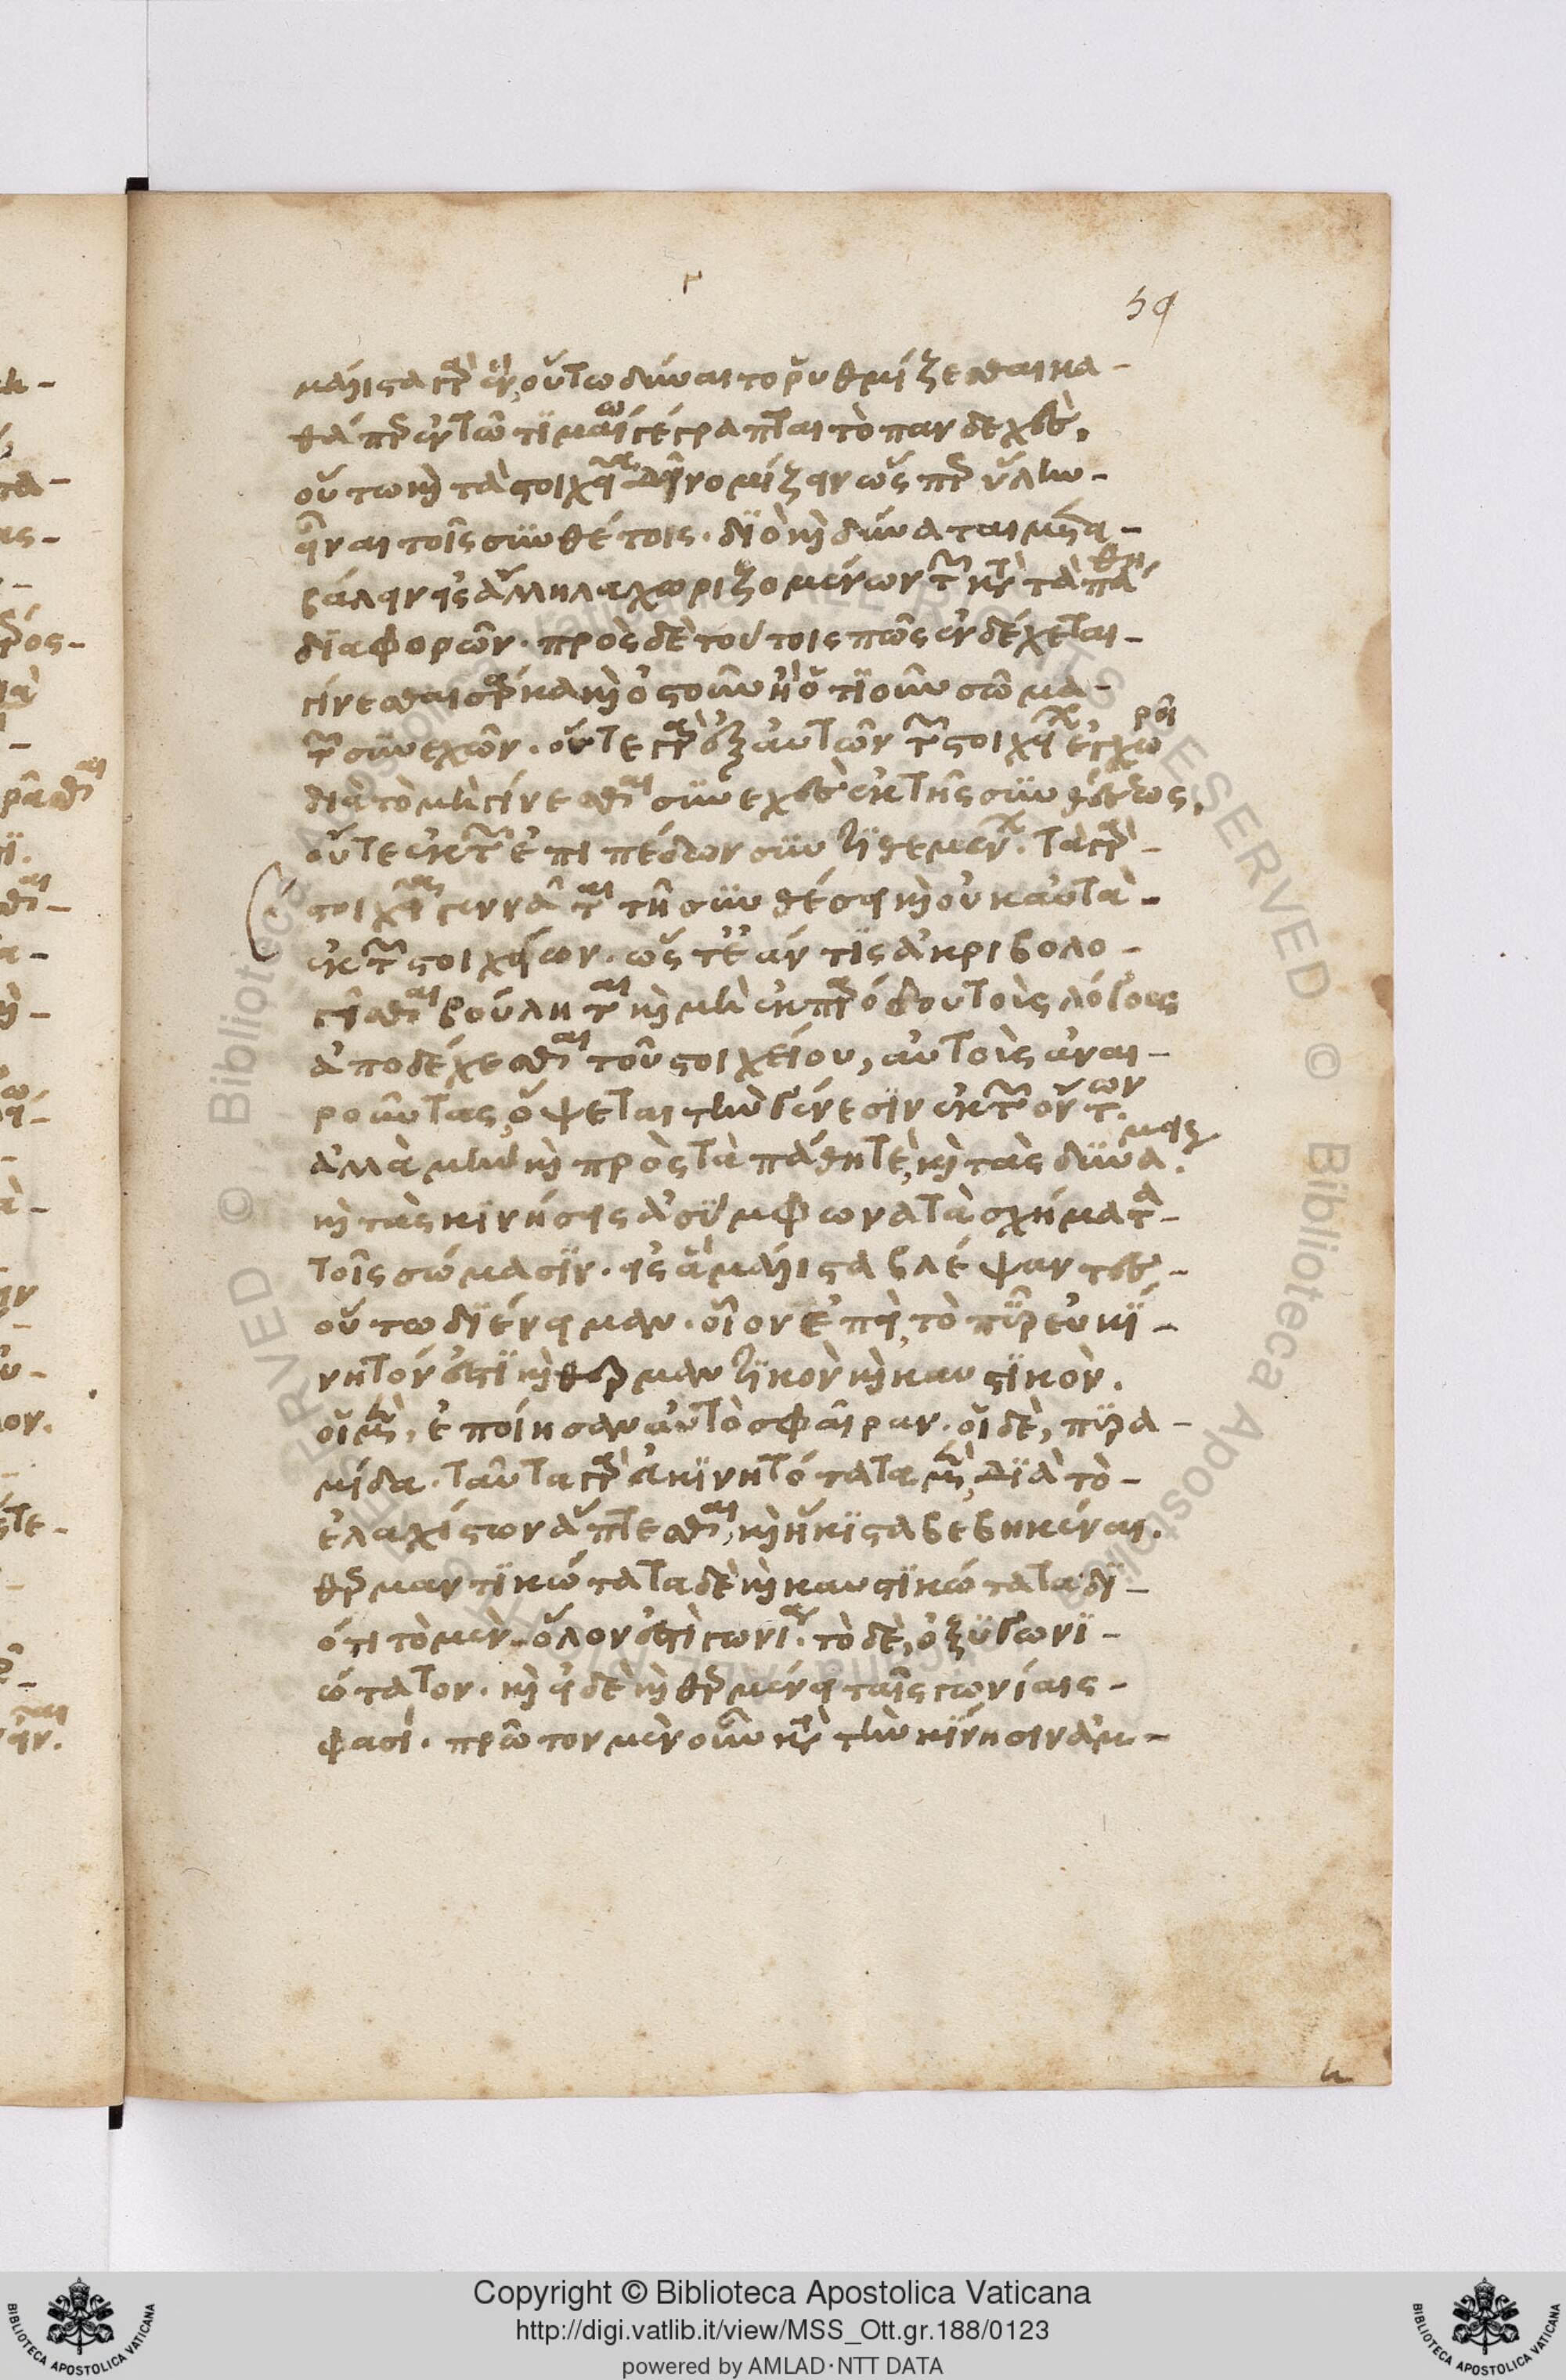 59
μάλιστα γὰρ ἂν, οὕτω δύναιτο ῥυθμίζεσθαι κα-
θάπερ ἐν τῶ τιμαίω γέγραπται τὸ πανδεχὲς,
οὕτω καὶ τὰ στοιχεῖα δεῖ νομίζειν ὥσπερ ὕλην
εἶναι τοῖς συνθέτοις. διὸ καὶ δύναται μετα-
βάλειν εἰς ἄλληλα χωριζομένων τῶν κατὰ τὰ πάθη
διαφορῶν. πρὸς δὲ τούτοις πῶς ἐνδέχεται
γίνεσθαι σάρκα καὶ ὀστοῦν ἢ ὁτιοῦν σῶμα
τῶν συνεχῶν. οὔτε γὰρ ἐξ αὐτῶν τῶν στοιχείων ἐγχωρεῖ
διὰ τὸ μὴ γίνεσθαι συνεχὲς ἐκ τῆς συνθέσεως,
οὔτε ἐκ τῶν ἐπιπέδων συντιθεμένων. τὰ γὰρ
στοιχεῖα γεννᾶται τῆ συνθέσει καὶ οὐκ αὐτὰ
ἐκ τῶν στοιχείων. ὥστε ἐάν τις ἀκριβολο-
γεῖσθαι βούληται καὶ μὴ ἐκ παρόδου τοὺς λόγους
ἀποδέχεσθαι τοῦ στοιχείου, αὐτοὺς ἀναι-
ροῦντας, ὄψεται τὴν γένεσιν ἐκ τῶν ὄντων.
ἀλλὰ μὴν καὶ πρὸς τὰ πάθη τὲ, καὶ τὰς δυνάμεις.
καὶ τὰς κινήσεις ἀσύμφωνα τὰ σχήματα
τοῖς σώμασιν. εἰς ἃ μάλιστα βλέψαντες,
οὕτω διένειμαν. οἷον ἐπεὶ, τὸ πῦρ εὐκί-
νητόν ἐστι καὶ θερμαντικὸν καὶ καυστικὸν.
οἱ μὲν, ἐποίησαν αὐτὸ σφαῖραν. οἱ δὲ, πυρα-
μίδα. ταῦτα γὰρ εὐκινητότατα μὲν, διὰ τὸ
ἐλαχίστων ἅπτεσθαι, καὶ ἥκιστα βεβηκέναι.
θερμαντικώτατα δὲ καὶ καυστικώτατα δι-
ότι τὸ μὲν ὅλον ἐστὶ γωνία. τὸ δὲ, ὀξυγωνι-
ώτατον. καίει δὲ καὶ θερμαίνει ταῖς γωνίαις
φασί. πρῶτον μὲν οὖν κατὰ τὴν κίνησιν ἀμ-
Copyright © Biblioteca Apostolica Vaticana
http://digi.vatlib.it/view/MSS_Ott.gr.188/0123
powered by AMLAD·NTT DATA